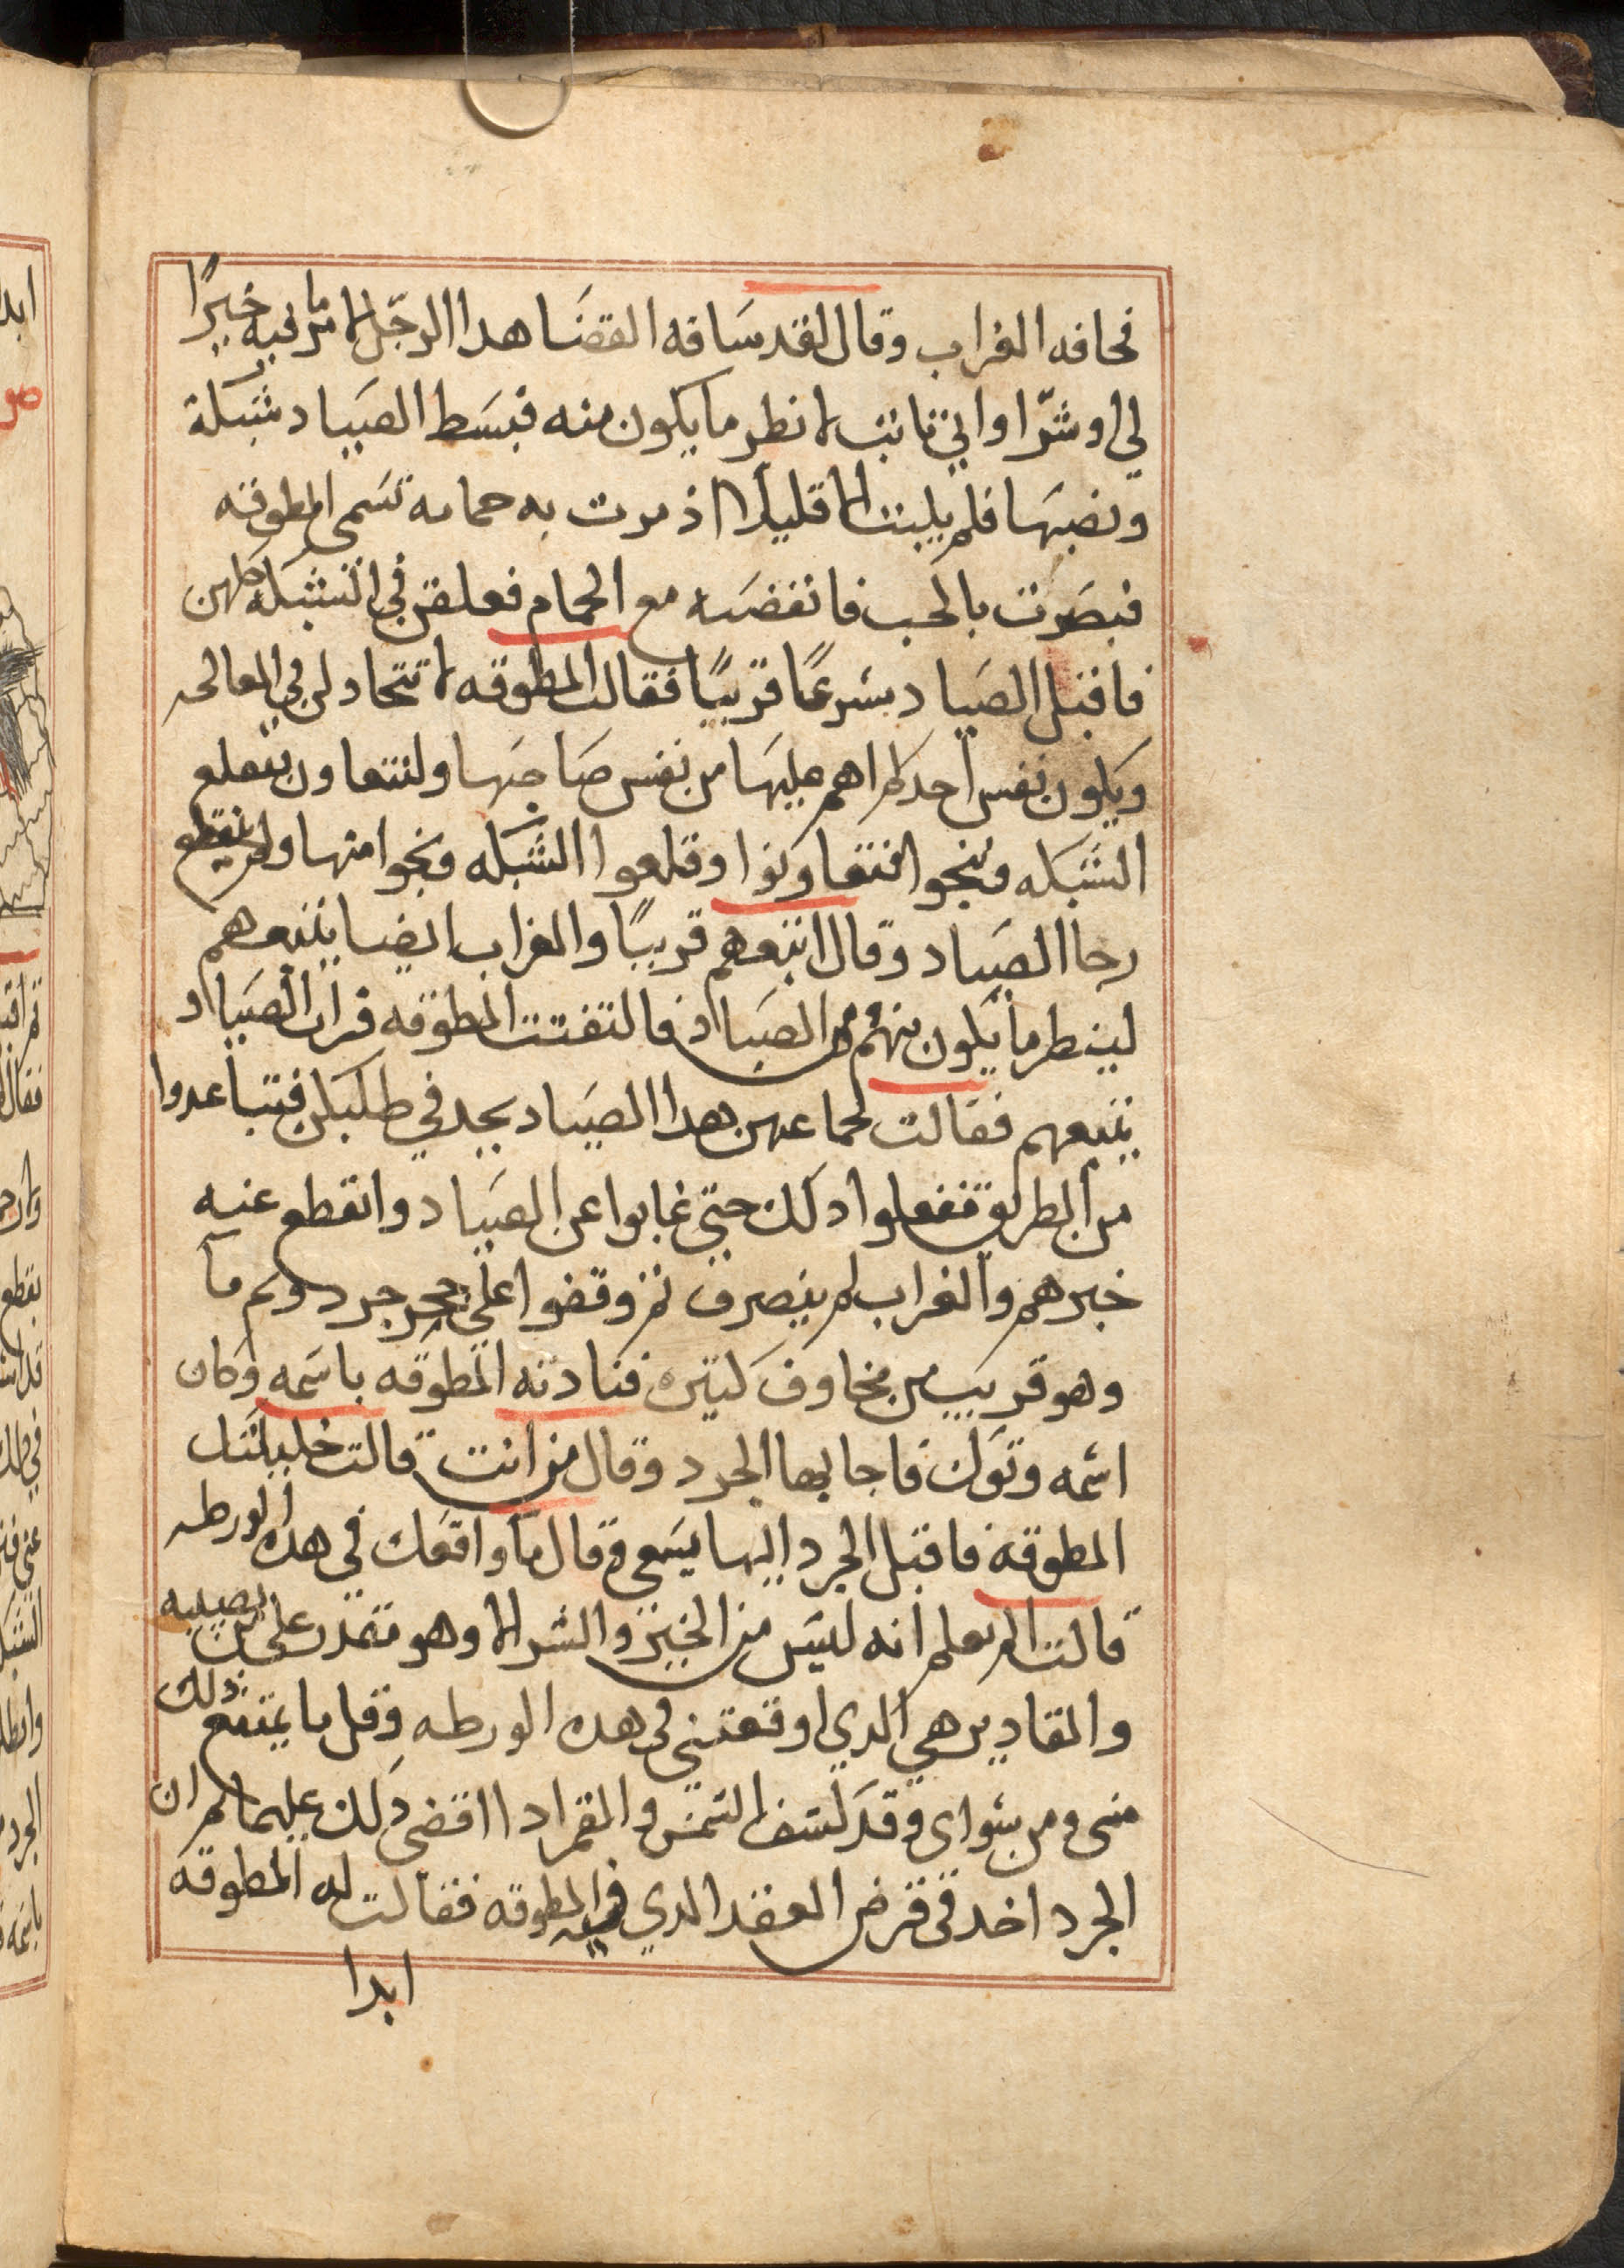 فخافه الغراب وقال لقد ساقه القضا هدا الرجل لامر ما فيه خيرًا
لي او شرّا واني ثابت لانظر ما يكون منه فبسط الصياد شبكة
ونصبها فلم يلبث الا قليلا اذ مرت به حمامه تسمى المطوقه
فبصرت بالحب فانقضت مع الحمام فعلقن في الشبكه كلهن
فاقبل الصياد مسرعًا قريبًا فقالت المطوقه لا تتخادلن في المعالجه
ويكون نفس احدكم اهم عليها من نفس صاحبها ولنتعاون نقلع
الشبكه وننجوا فتعاونوا وقلعوا الشبكه ونجوا منها ولم ينقطع
رجا الصياد وقال اتبعهم قريبًا والغراب ايضا يتبعهم
لينظر ما يكون منهم ومن الصياد فالتفتت المطوقه فرات الصياد
يتبعهم فقالت لجماعهن هدا الصياد يجد في طلبكن فتباعدوا
من الطريق ففعلوا دلك حتى غابوا عن الصياد وانقطع عنه
خبرهم والغراب لم ينصرف ثم وقفوا على جحر جرد وثم ما
وهو قريب من مخاوف كثيره فنادته المطوقه باسمه وكان
اسمه وتوك فاجابها الجرد وقال من انت قالت خليلتك
المطوقه فاقبل الجرد اليها يسعى وقال ما واقعك في هده الورطه
قالت الم تعلم انه ليس من الخير والشر الا وهو مقدر على من يصيبه
والمقادير هي الدي اوقعتني في هده الورطه وقل ما يمتنع ذلك
منى ومن سواى وقد كسف الشمس والقمر ادا اقضى دلك عليهما ثم ان
الجرد اخد في قرض العقد الدي فيه المطوقه فقالت له المطوقه
ابدا